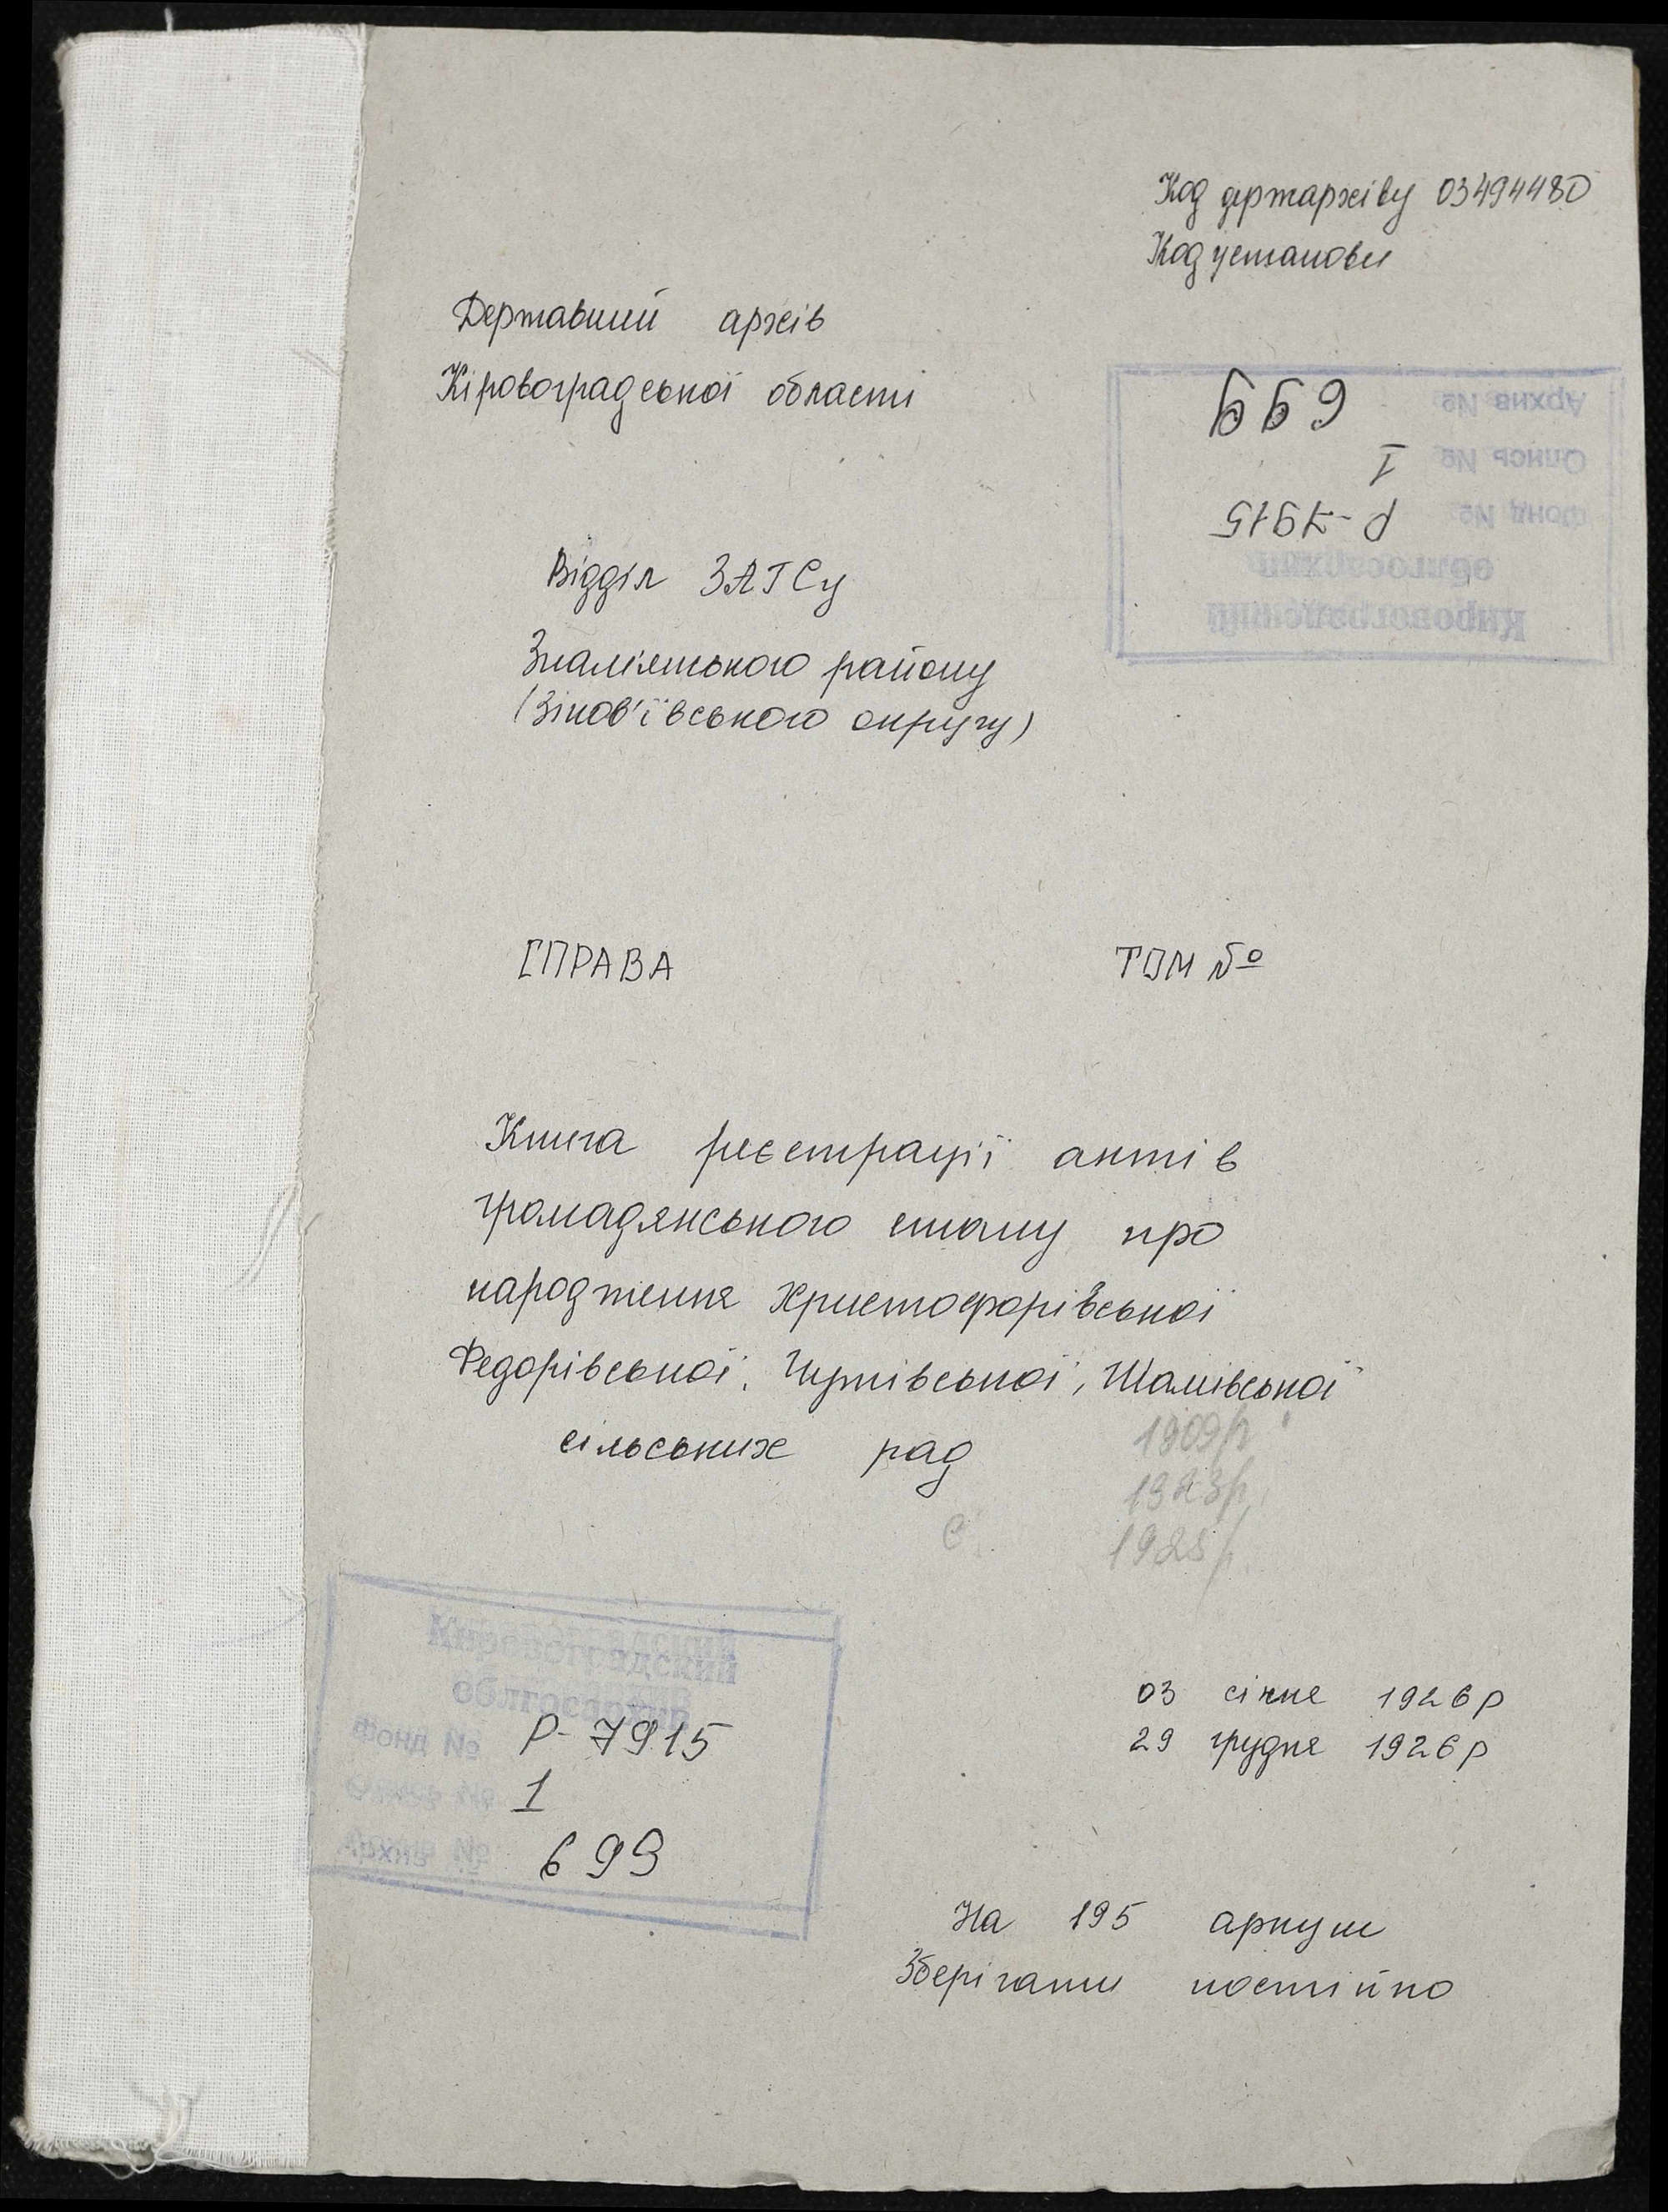 Код держархіву 03494480
Код установи
Державний архів
Кіровоградської області
Кировоградский
облгосархив
Фонд № Р-7915
Опись № 1
Архив № 699
Відділ ЗАГСу
Знам'янського району
(Зінов'ївського округу)
СПРАВА ТОМ №
Книга реєстрації актів
громадянського стану про
народження Христофорівської
Федорівської, Чутівської, Шамівської
сільських рад
1909р
1923р.
1925р.
Кировоградский
облгосархив
Фонд № Р-7915
Опись № 1
Архив № 699
03 січня 1926р
29 грудня 1926р
На 195 аркуш
Зберігати постійно